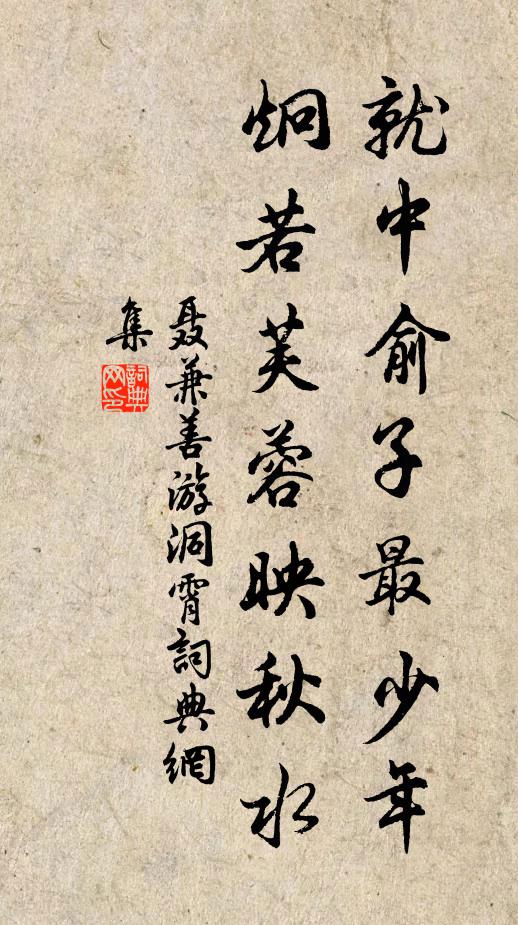 就中俞子最少年
炯若芙蓉映秋水
聂兼善游洞霄詞典網
集
詞典
网印